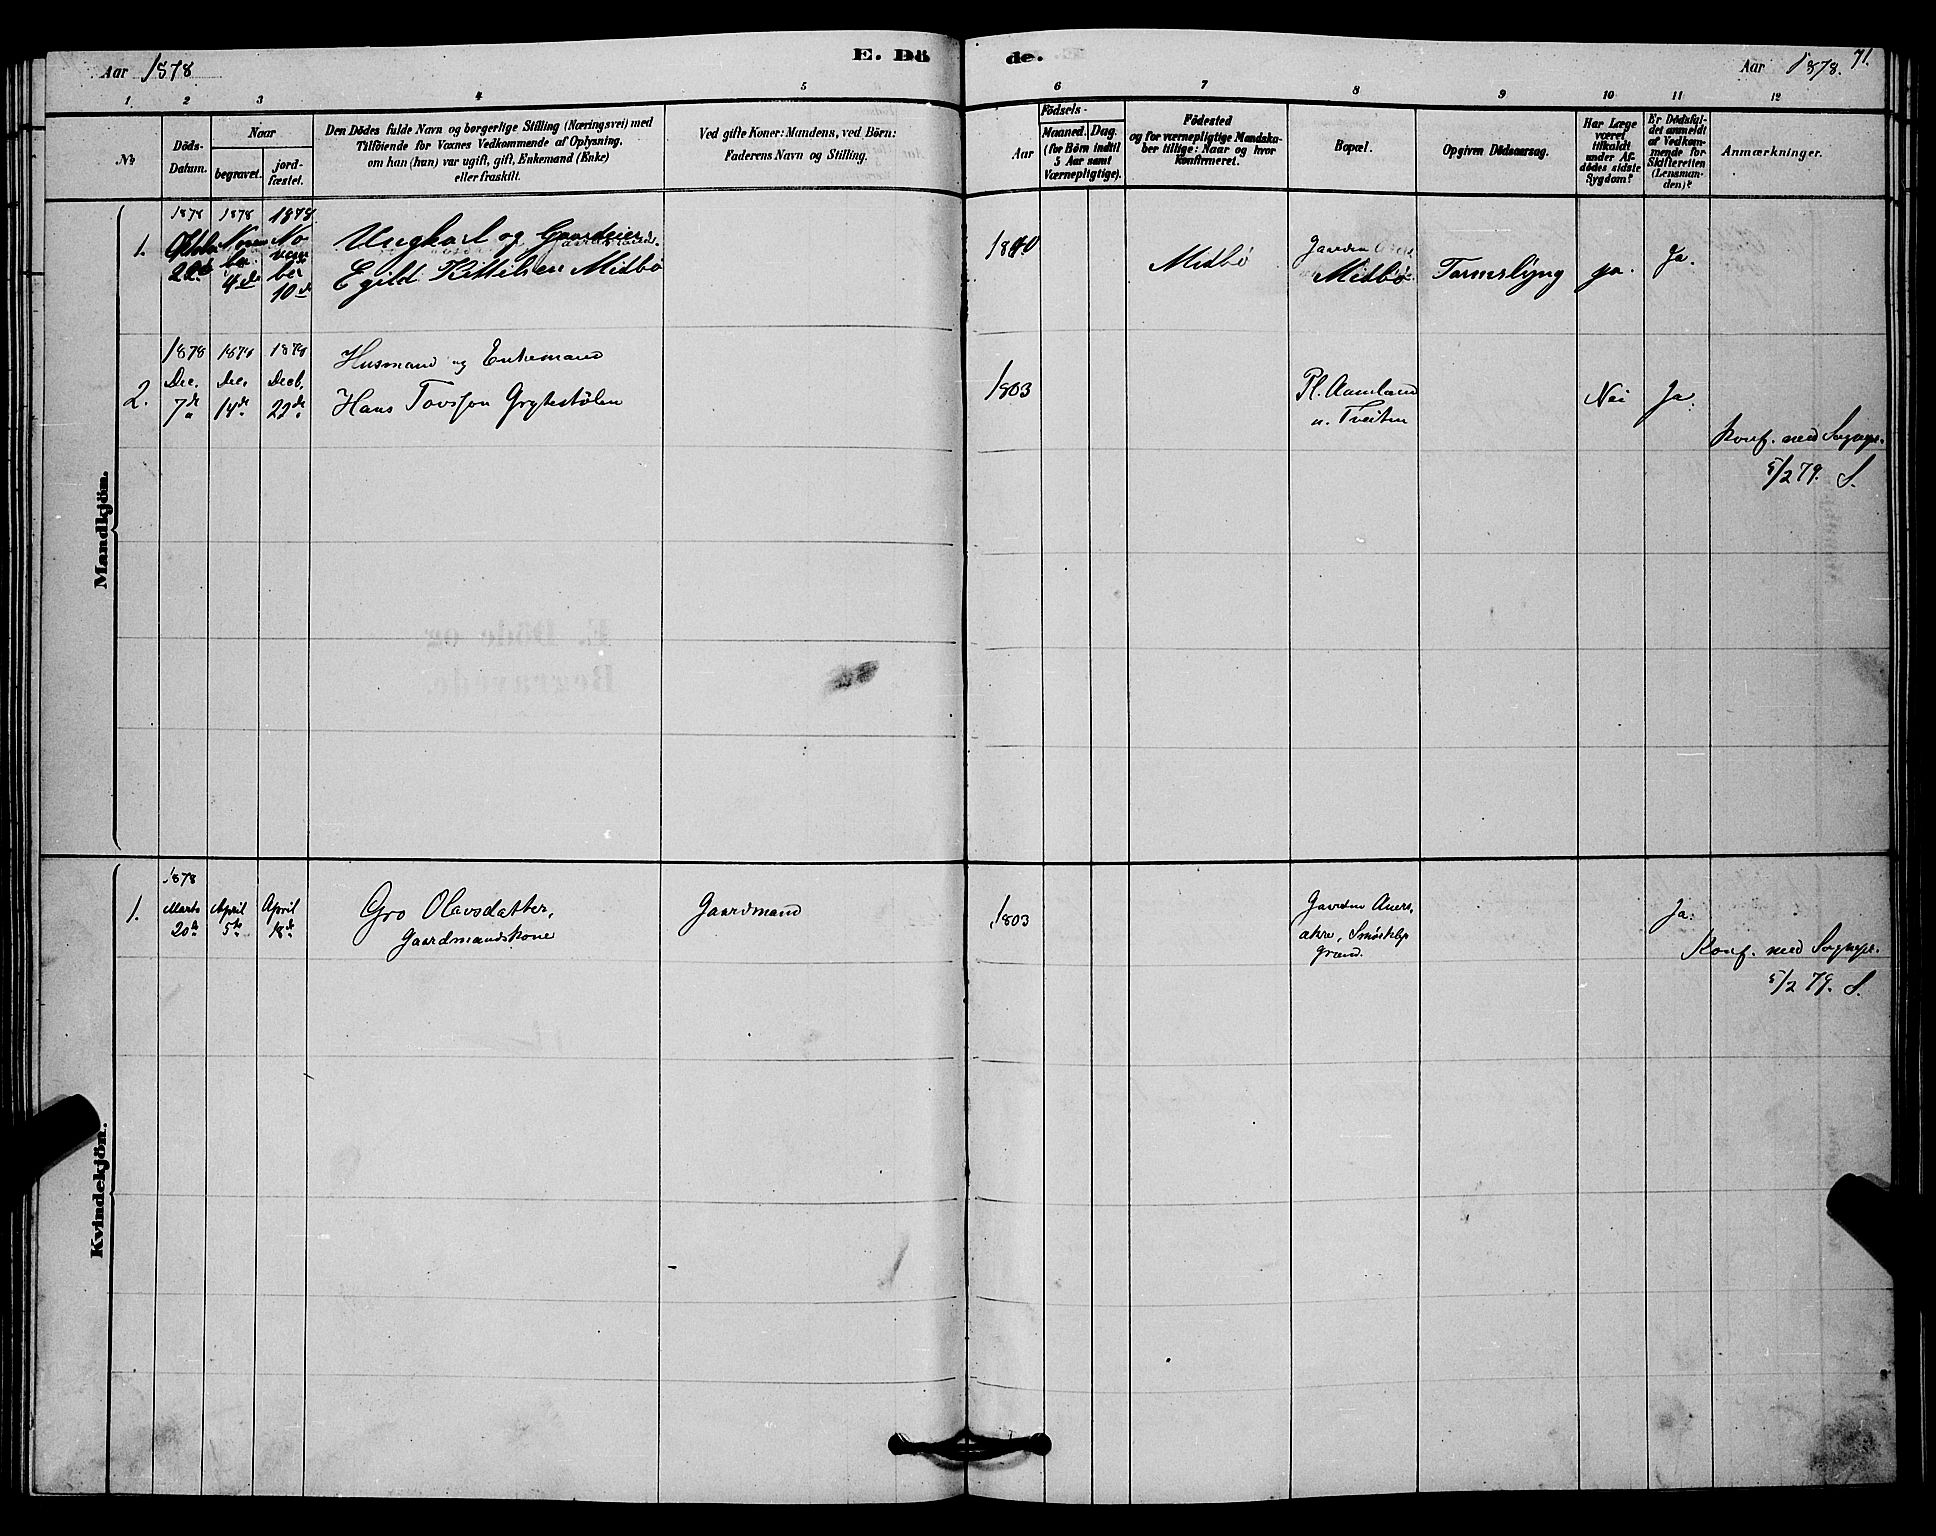 Aar 1878
E. Dö
de.
Aar 1878.
71.
1
2
3
4
5
6
7
8
9
10
11
12
No
Döds-
Datum.
Naar
begravet.
jord-
fæstet.
Den Dödes fulde Navn og borgerlige Stilling (Næringsvei) med
Tilföiende for Voxnes Vedkommende af Oplysning,
om han (hun) var ugift, gift, Enkemand (Enke)
eller fraskilt.
Ved gifte Koner: Mandens, ved Börn:
Faderens Navn og Stilling.
Födsels-
Aar
Maaned.
Dag.
(for Börn indtil
5 Aar samt
Værnepligtige).
Födested
og for værnepligtige Mandska-
ber tillige: Naar og hvor
konfirmeret.
Bopæl.
Opgiven Dödsaarsag.
Har Læge
været
tilkaldt
under Af-
dödes sidste
Sygdom?
Er Dödsfal-
det anmeldt
af Vedkom-
mende for
Skifteretten
(Lensman-
den)?
Anmærkninger.
Mandkjön.
1878
1878
1878
1.
No
vem
ber
10de
4de
Ungkarl og Gaardeier
Egild Kittilsen Midbö
1840
Midbö
Gaarden
Midbö
Tarmslyng
ja.
Ja.
1878
1878
1878
2.
Dec.
7de
Dec.
14de
Decb.
22de
Husmand og Enkemand
Hans Tovsson Grytestölen
1803
Pl. Aamland
u. Tveiten
Nei
Ja.
Konf. med Sognepr.
5/2 79. S.
Kvindekjön.
1878
1.
Marts
20de
April
5te
April
18de
Gro Olavsdatter,
Gaardmandskone
Gaardmand
1803
Gaarden
akre,
Grænd.
Ja.
Konf. med Sognepr.
5/2 79. S.